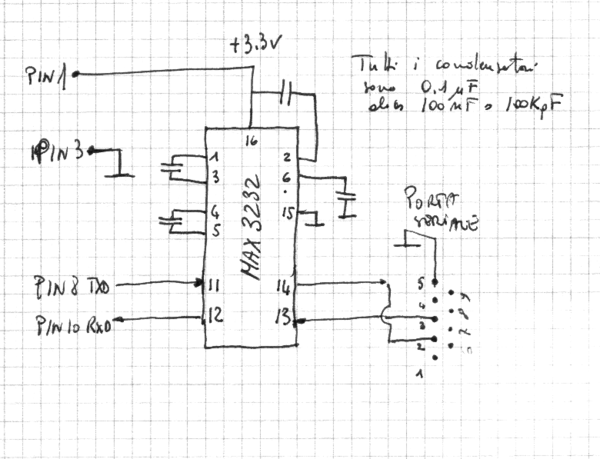 +3.3V
PIN 1
Tutti i condensatori
sono 0.1µF
alias 100nF o 100KpF
PIN 3
16
1
2
3
6
4
15
5
MAX3232
PORTA
SERIALE
PIN 8 TXD
11
14
5
9
4
8
PIN 10 RXD
12
13
3
7
2
6
1